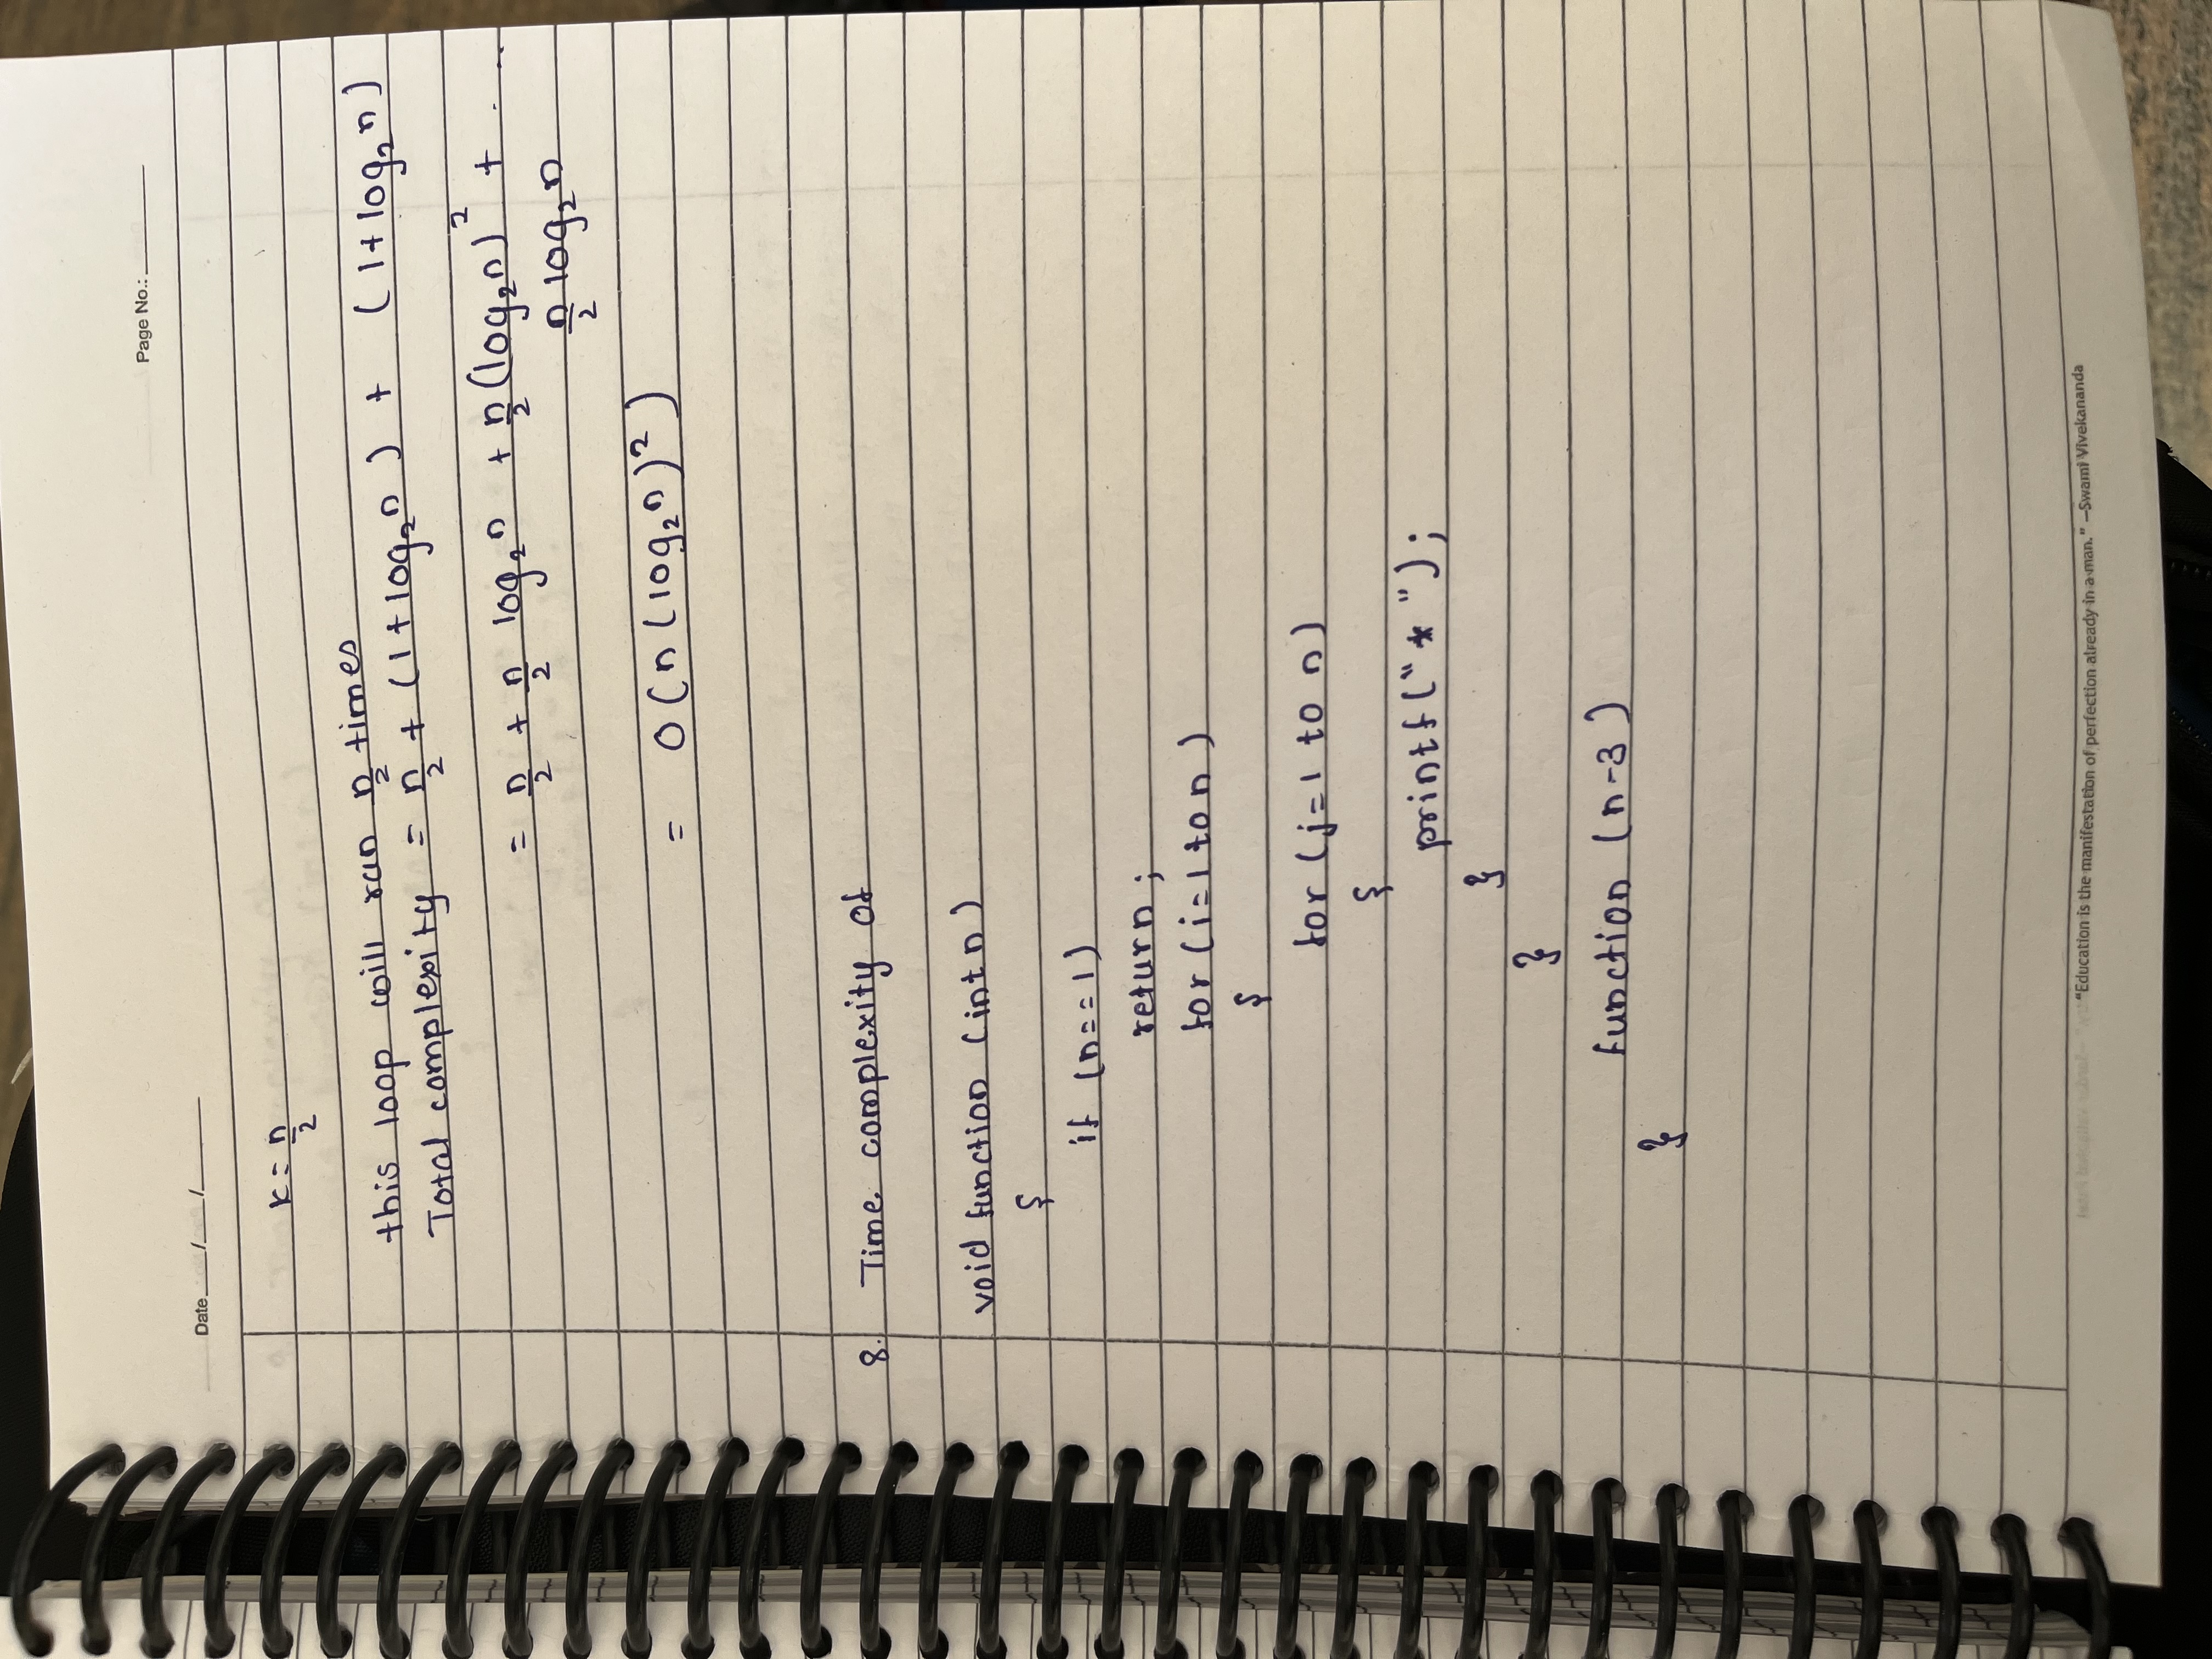 Page No.:
Date / /
K = n/2
this loop will run n/2 times
Total complexity = n/2 + (1+log₂n) + (1+log₂n)
= n/2 + n/2 log₂n + n/2 (log₂n)² + ...
n/2 log₂n
= O(n(log₂n)²)
8. Time complexity of
void function (int n)
{
if (n==1)
return;
for (i=1 to n)
{
for (j=1 to n)
{
printf("*");
}
}
function (n-3)
}
"Education is the manifestation of perfection already in a man." –Swami Vivekananda